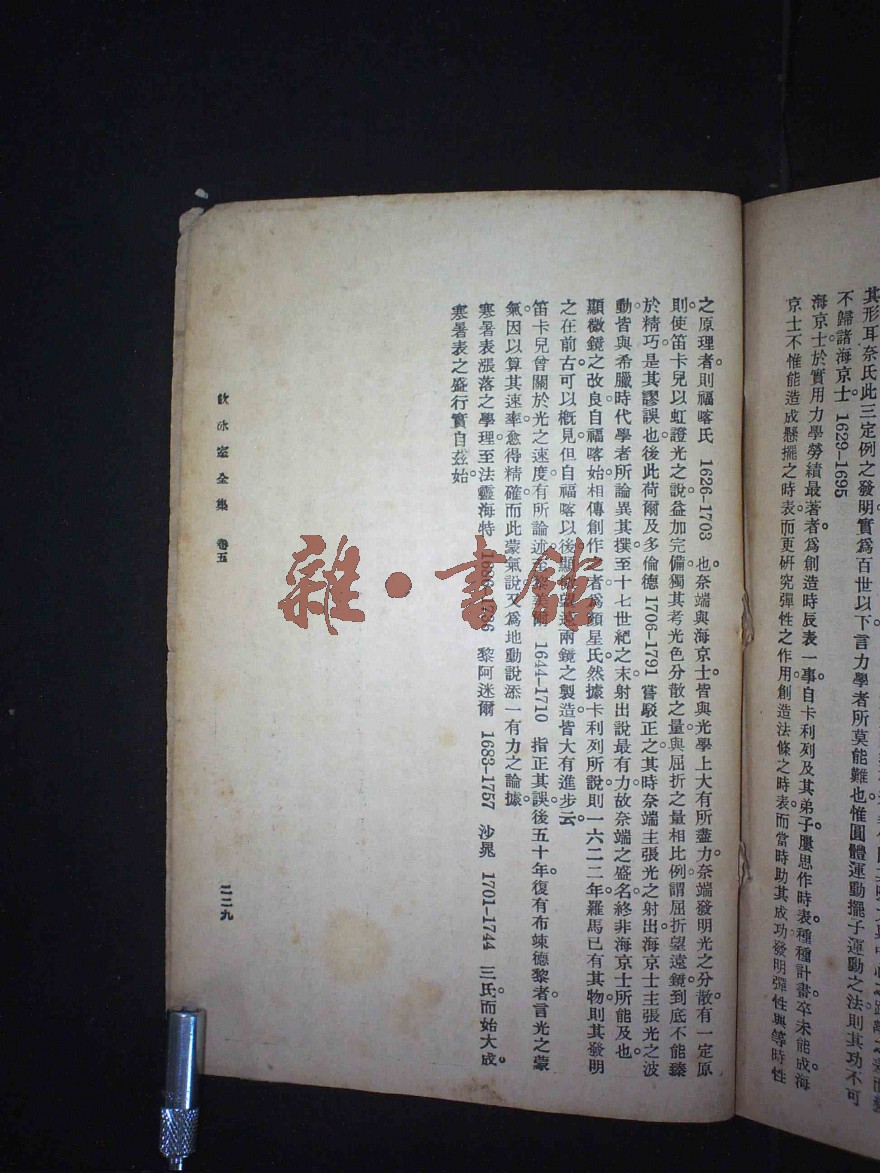 其形耳奈氏此三定例之發明實爲百世以下言力學者所莫能難也惟圓體運動擺子運動之法則其功不可
不歸諸海京士。1629—1695
海京士於實用力學勞績最著者爲創造時辰表一事自卡利列及其弟子屢思作時表種種計畫卒未能成海
京士不惟能造成懸擺之時表而更研究彈性之作用創造法條之時表而當時助其成功發明彈性與等時性
之原理者則福喀氏 1626—1703 也。奈端與海京士皆與光學上大有所盡力。奈端發明光之分散有一定原
則。使笛卡兒以虹證光之說益加完備。獨其考光色分散之量與屈折之量相比例謂屈折望遠鏡到底不能臻
於精巧。是其謬誤也。後此荷爾及多倫德 1706—1791 嘗駁正之。其時奈端主張光之射出。海京士主張光之波
動。皆與希臘時代學者所論異其撲。至十七世紀之末射出說最有力。故奈端之盛名終非海京士所能及也。
顯微鏡之改良自福喀始。相傳創作之者爲顏星氏。然據卡利列所說則一六二二年羅馬已有其物。則其發明
之在前古可以概見。但自福喀以後顯微望遠兩鏡之製造皆大有進步云。
笛卡兒曾關於光之速度有所論述。至 1644—1710 指正其誤。後五十年復有布竦德黎者言光之蒙
氣。因以算其速率愈得精確。而此蒙氣說又爲地動說添一有力之論據。
寒暑表漲落之學理。至法靈海特 黎阿迷爾 1683—1757 沙晁 1701—1744 三氏而始大成。
寒暑表之盛行實自茲始。
飲冰室全集 卷五
二二九
雜·書館